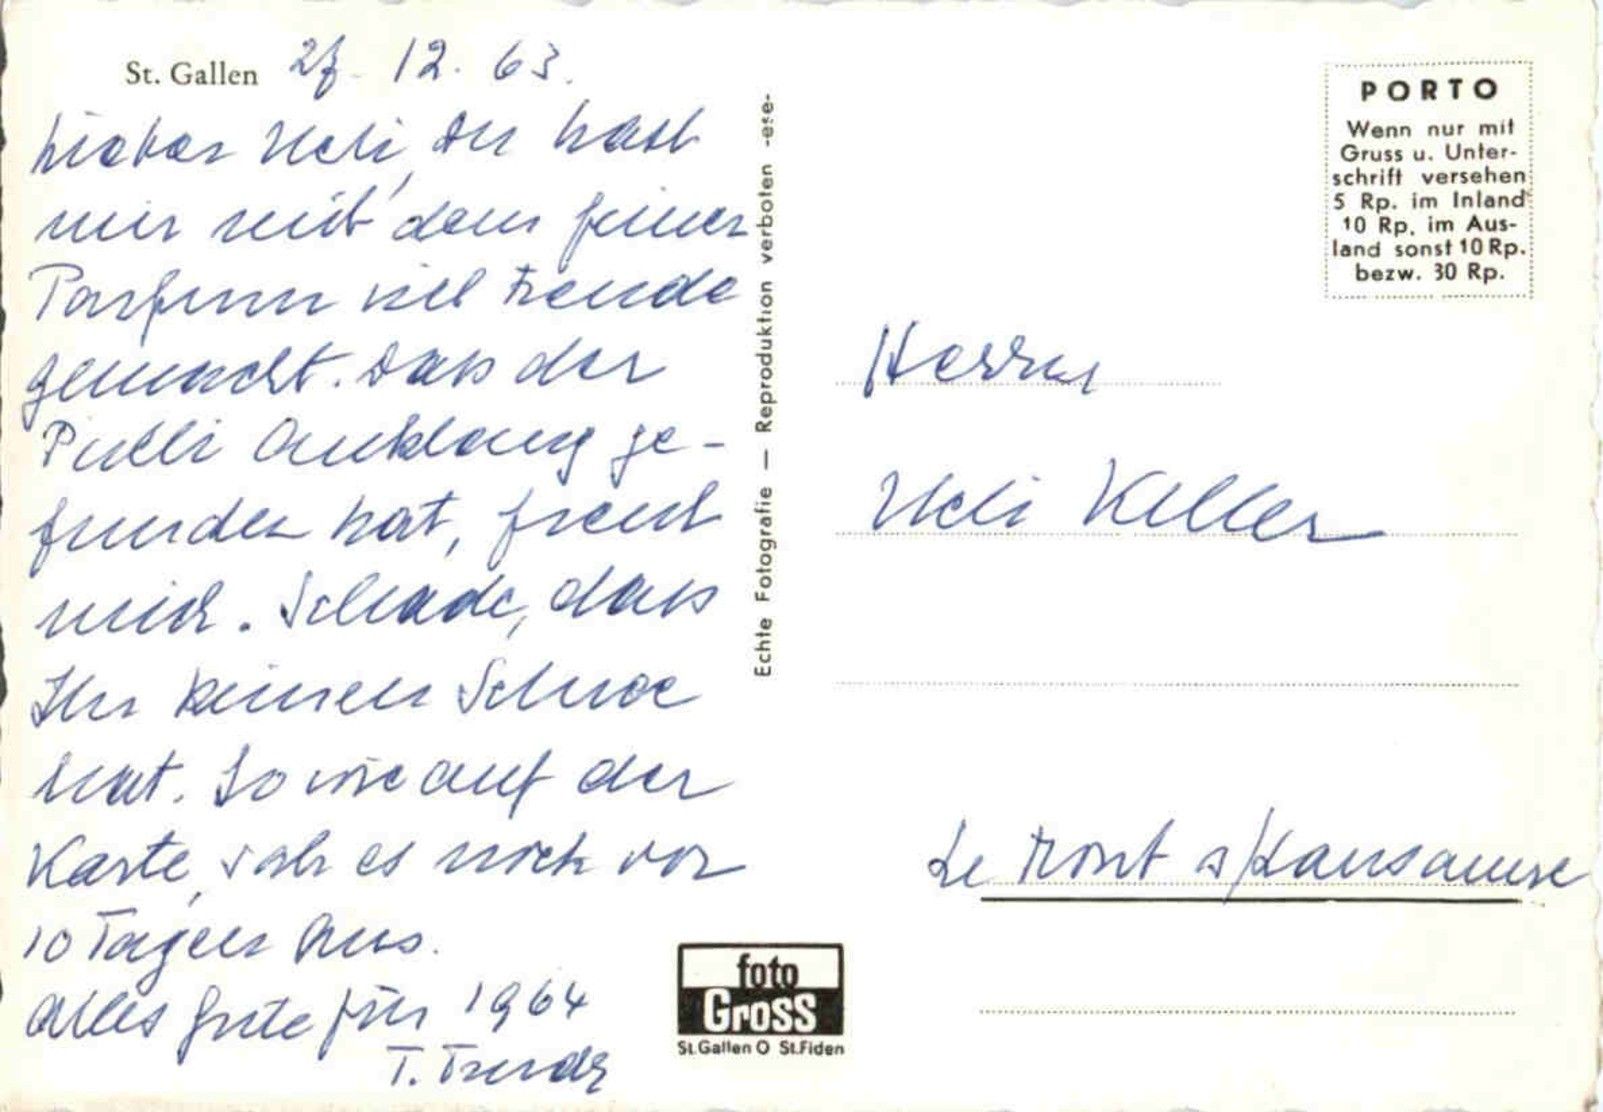 St. Gallen 27. 12. 63.
Lieber Ueli, Du hast
mir mit dem feinen
Parfum viel Freude
gemacht. Dass der
Pulli Anklang ge-
funden hat, freut
mich. Schade, dass
Ihr keinen Schnee
hat. So wie auf der
Karte, sah es noch vor
10 Tagen aus.
Alles Gute für 1964
T. Trudy
Echte Fotografie — Reproduktion verboten -ese-
PORTO
Wenn nur mit
Gruss u. Unter-
schrift versehen
5 Rp. im Inland
10 Rp. im Aus-
land sonst 10 Rp.
bezw. 30 Rp.
Herrn
Ueli Keller
Le Mont s/Lausanne
foto
Gross
St.Gallen O St.Fiden